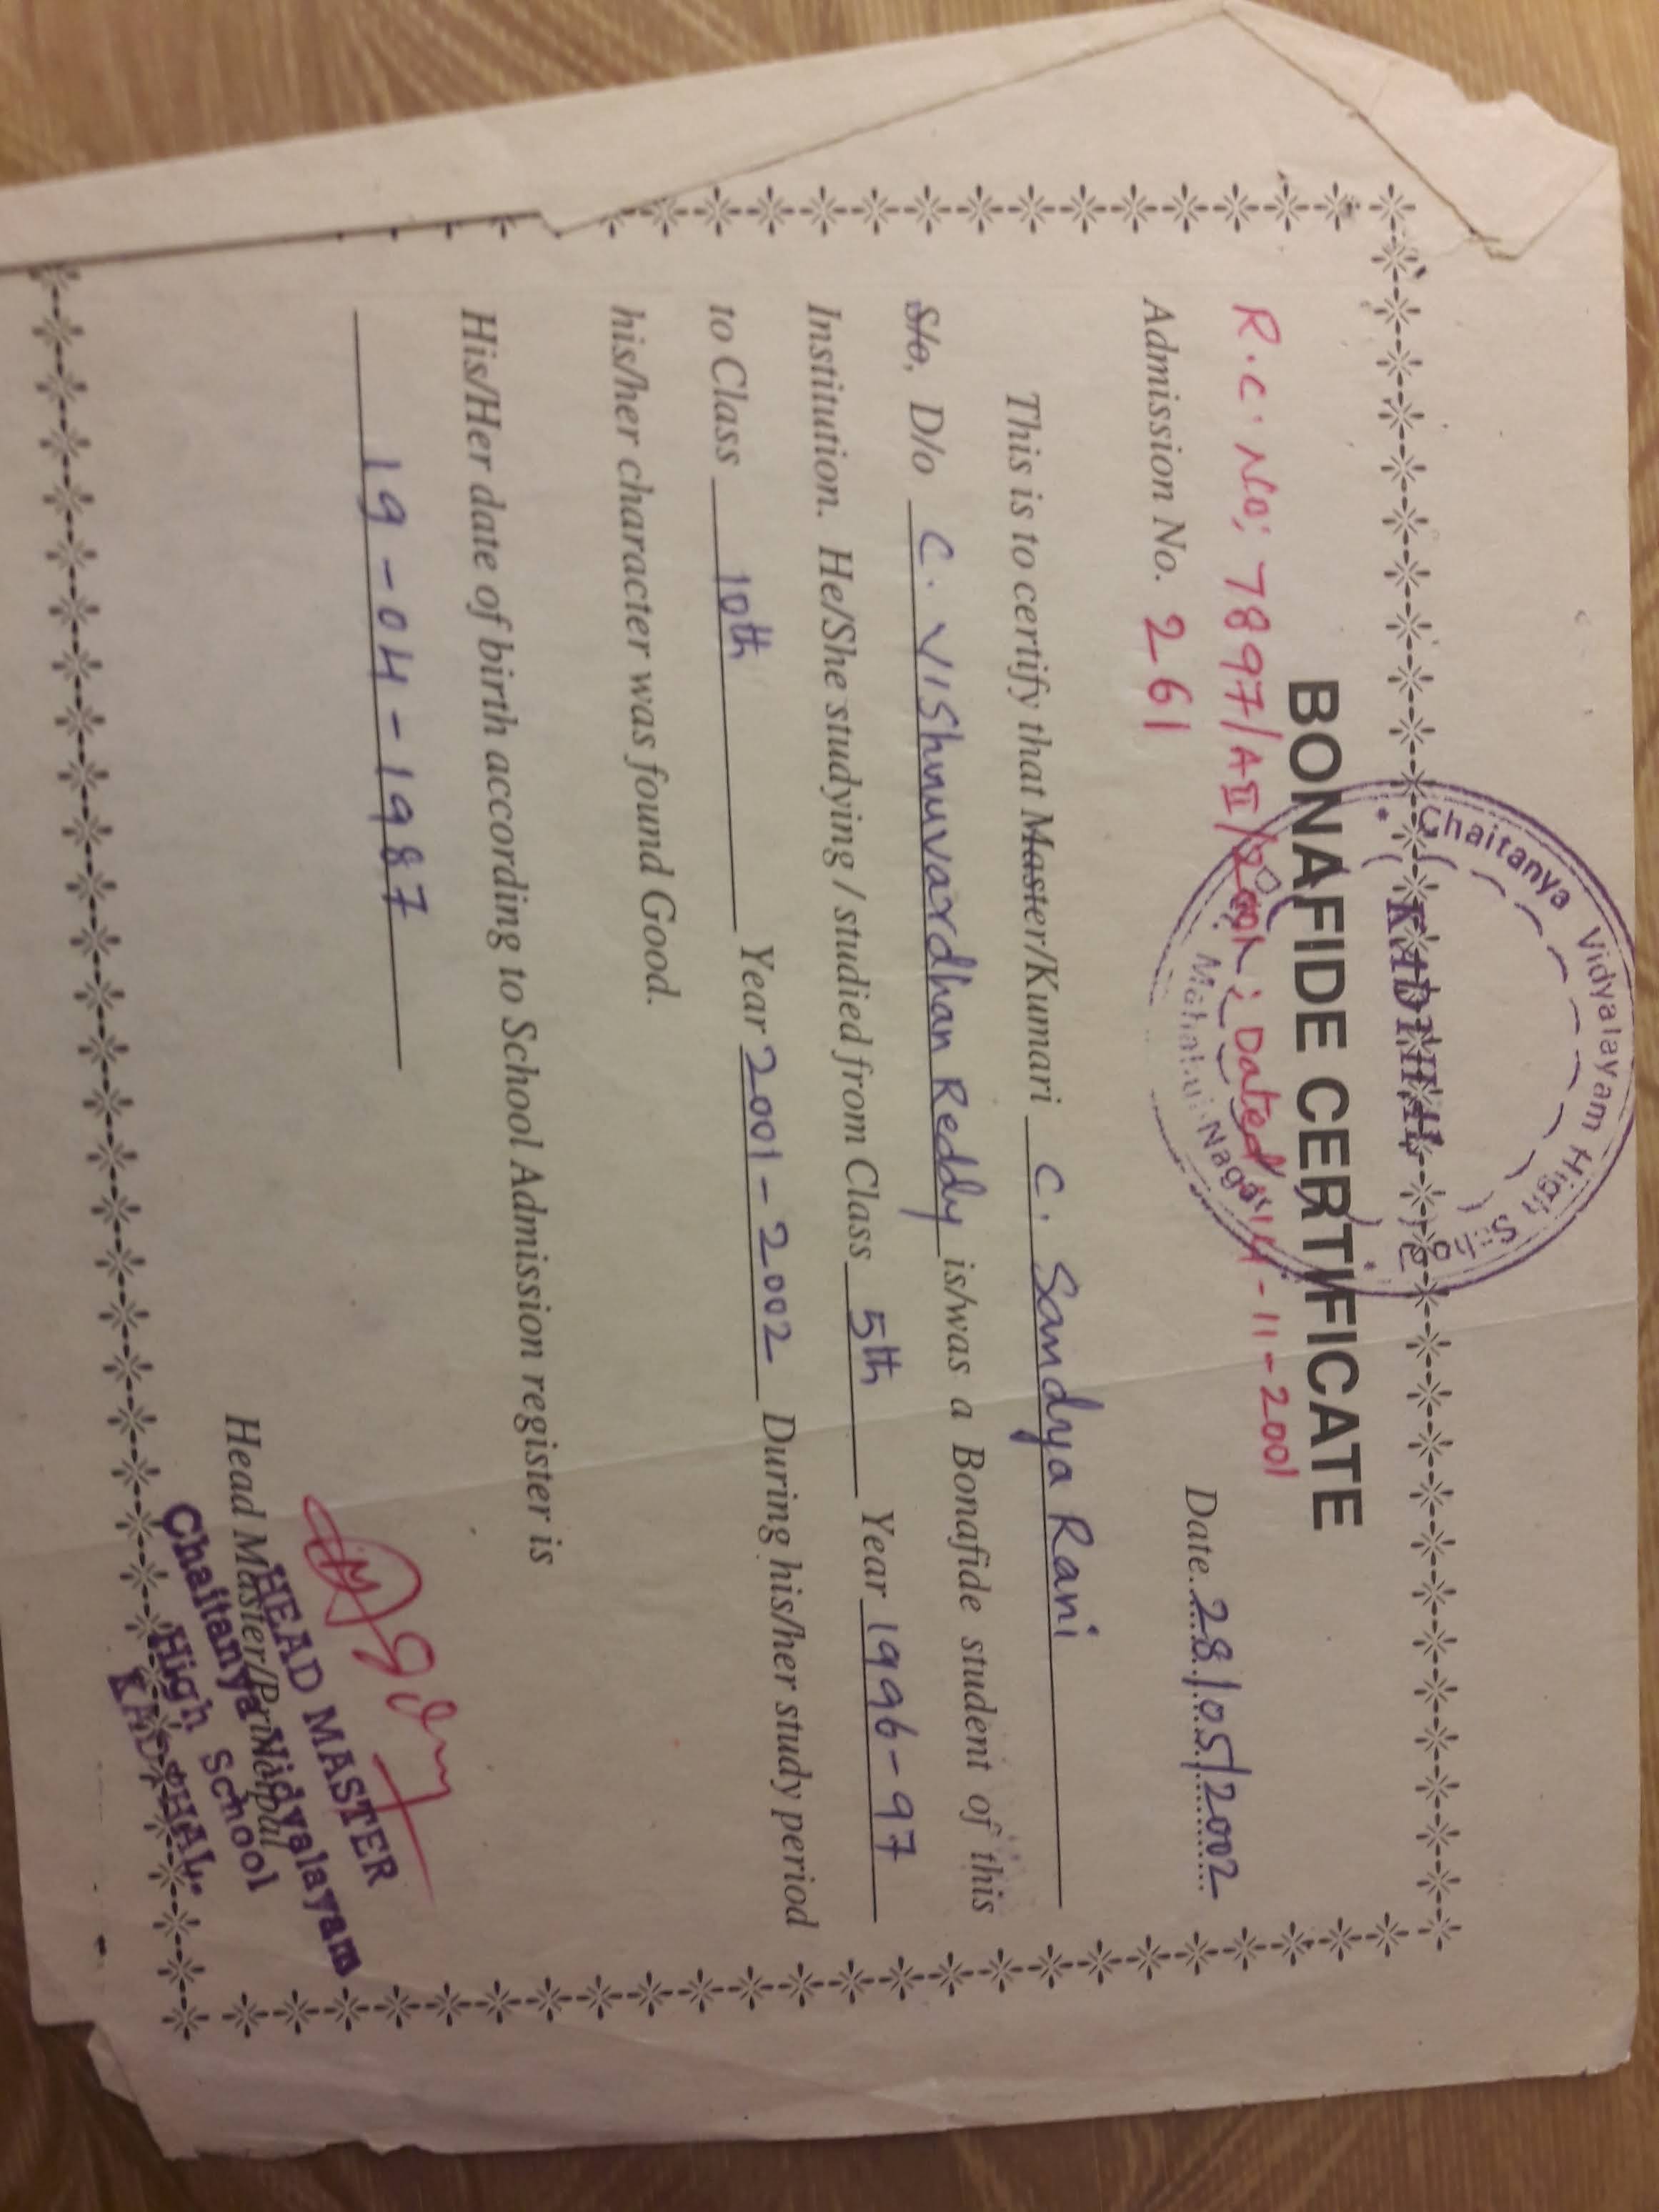 Chaitanya Vidyalayam High School
KADTHAL
BONAFIDE CERTIFICATE
R.C. No; 7897/AII/2001; Dated 14-11-2001
Nagar
Date 28/05/2002
Admission No. 261
This is to certify that Master/Kumari C. Sandya Rani
S/o, D/o C. Vishnuvardhan Reddy is/was a Bonafide student of this
Institution. He/She studying / studied from Class 5th Year 1996-97
to Class 10th Year 2001-2002 During his/her study period
his/her character was found Good.
His/Her date of birth according to School Admission register is
19-04-1987
HEAD MASTER
Head Master/Principal
Chaitanya Vidyalayam
High School
KADTHAL.